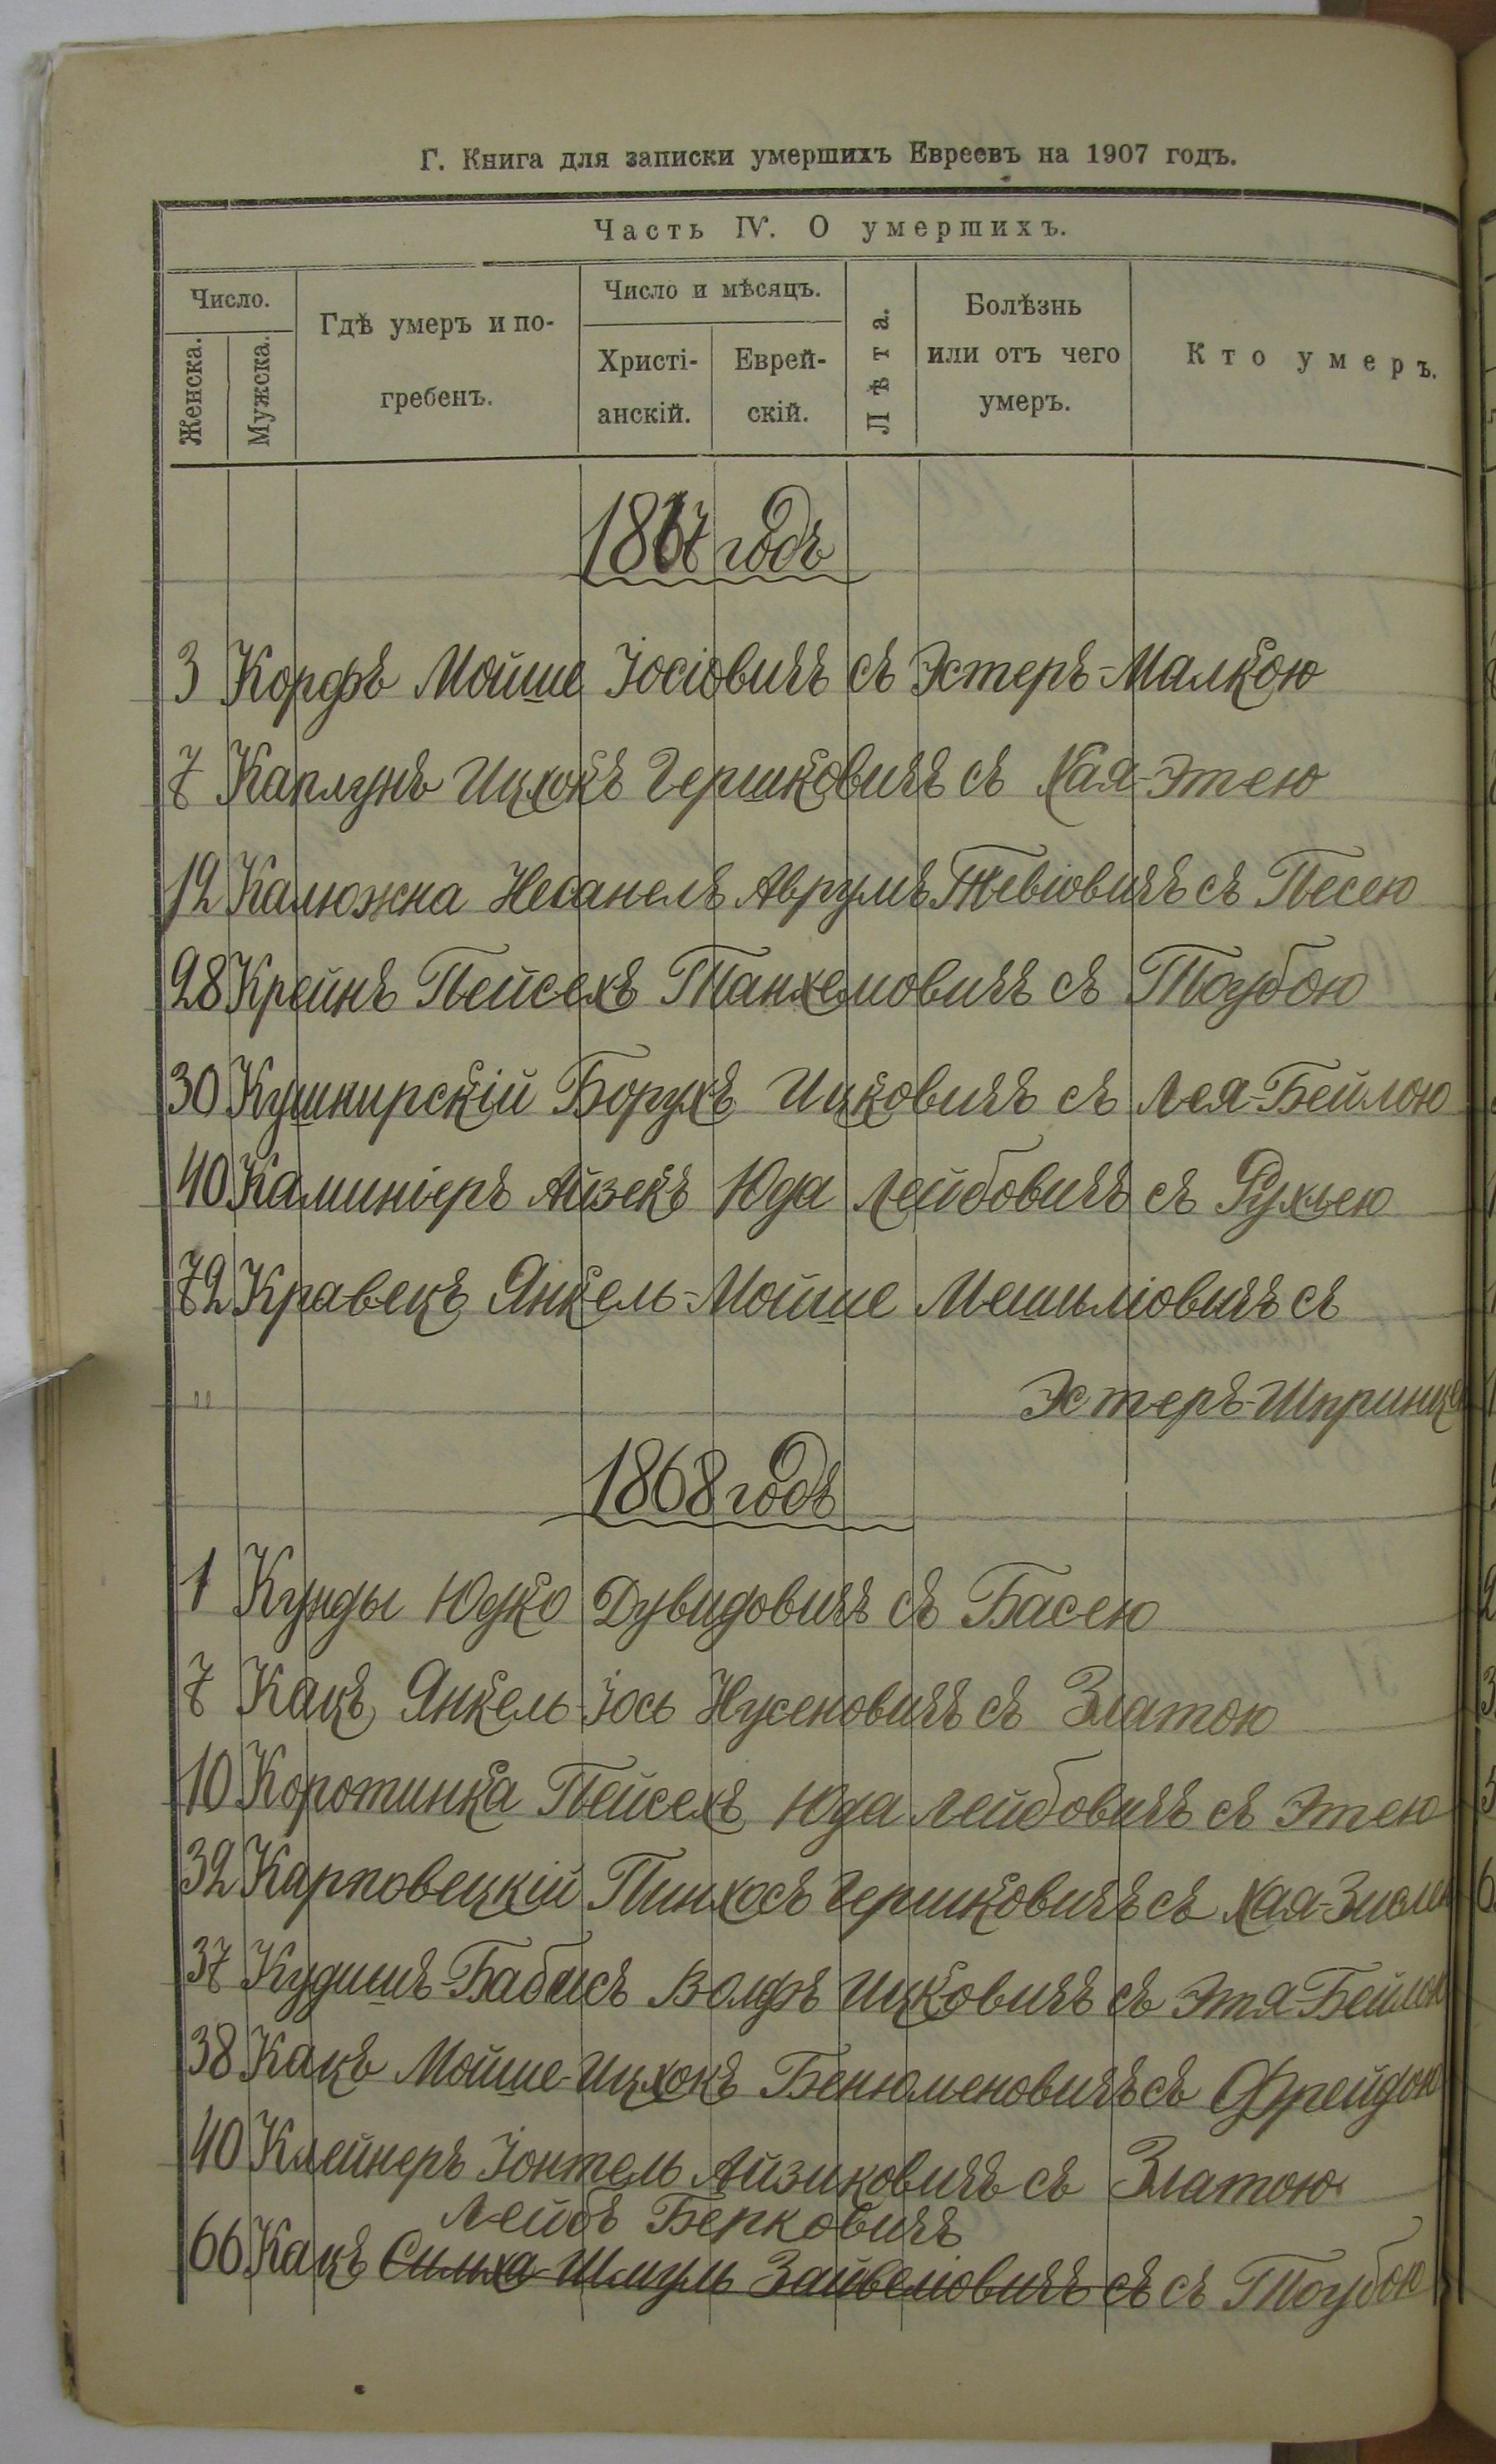 Г. Книга для записки умершихъ Евреевъ на 1907 годъ.
Часть IV. О умершихъ.
Число.
Женска.
Мужска.
Гдѣ умеръ и по-
гребенъ.
Число и мѣсяцъ.
Христі-
анскій.
Еврей-
скій.
Лѣта.
Болѣзнь
или отъ чего
умеръ.
Кто умеръ.
1867 годъ
3 Корфъ Мойше Іосіовичъ съ Эстеръ-Малкою
7 Каплунъ Ицхокъ Гершковичъ съ Хая-Этею
12 Калюжна Несанелъ Аврумъ Тевіовичъ съ Песею
28 Крейнъ Пейсехъ Танхемовичъ съ Таубою
30 Кушнирскій Борухъ Ицковичъ съ Лея-Бейлою
40 Каминіеръ Айзекъ Юда Лейбовичъ съ Рухлею
72 Кравецъ Янкель-Мойше Мешиліовичъ съ
" Эстеръ-Шпринцею
1868 годъ
1 Кунды Юдко Дувидовичъ съ Басею
7 Кацъ Янкель-Іось Нусеновичъ съ Златою
10 Коротинка Пейсехъ Юда Лейбовичъ съ Этею
32 Карповецкій Пинхосъ Гершковичъ съ Хая-Зислею
37 Кудишъ-Бабисъ Волфъ Ицковичъ съ Этя Бейлою
38 Кацъ Мойше-Ицхокъ Бенюменовичъ съ Фрейдою
40 Клейнеръ Іонтель Айзиковичъ съ Златою
Лейбъ Берковичъ
66 Кацъ Симха-Шмуль Зайвеліовичъ съ съ Таубою